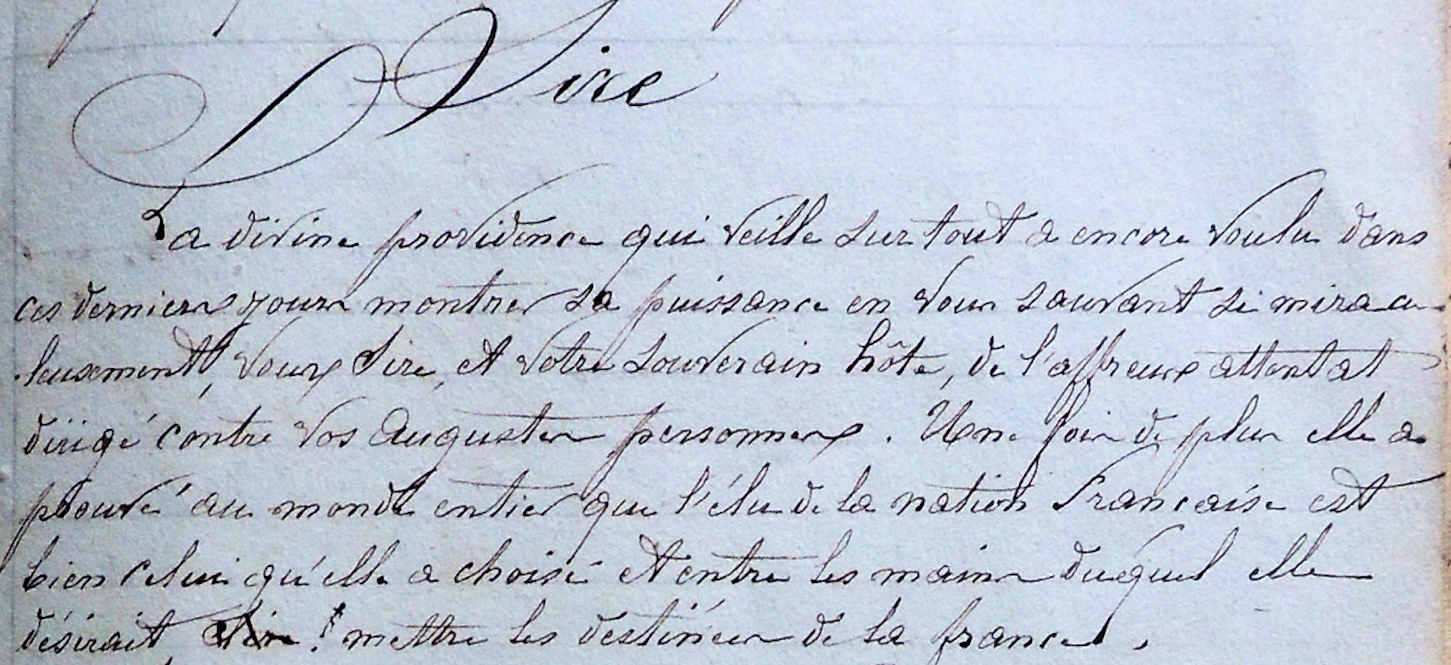 Sire
La divine providence qui veille sur tout a encore voulu dans
ces derniers jours montrer sa puissance en vous sauvant si miracu-
leusement, vous Sire, et votre souverain hôte, de l'affreux attentat
dirigé contre vos augustes personnes. Une fois de plus elle a
prouvé au monde entier que l'élu de la nation Française est
bien celui qu'elle a choisi et entre les mains duquel elle
désirait, mettre les destinées de la france.